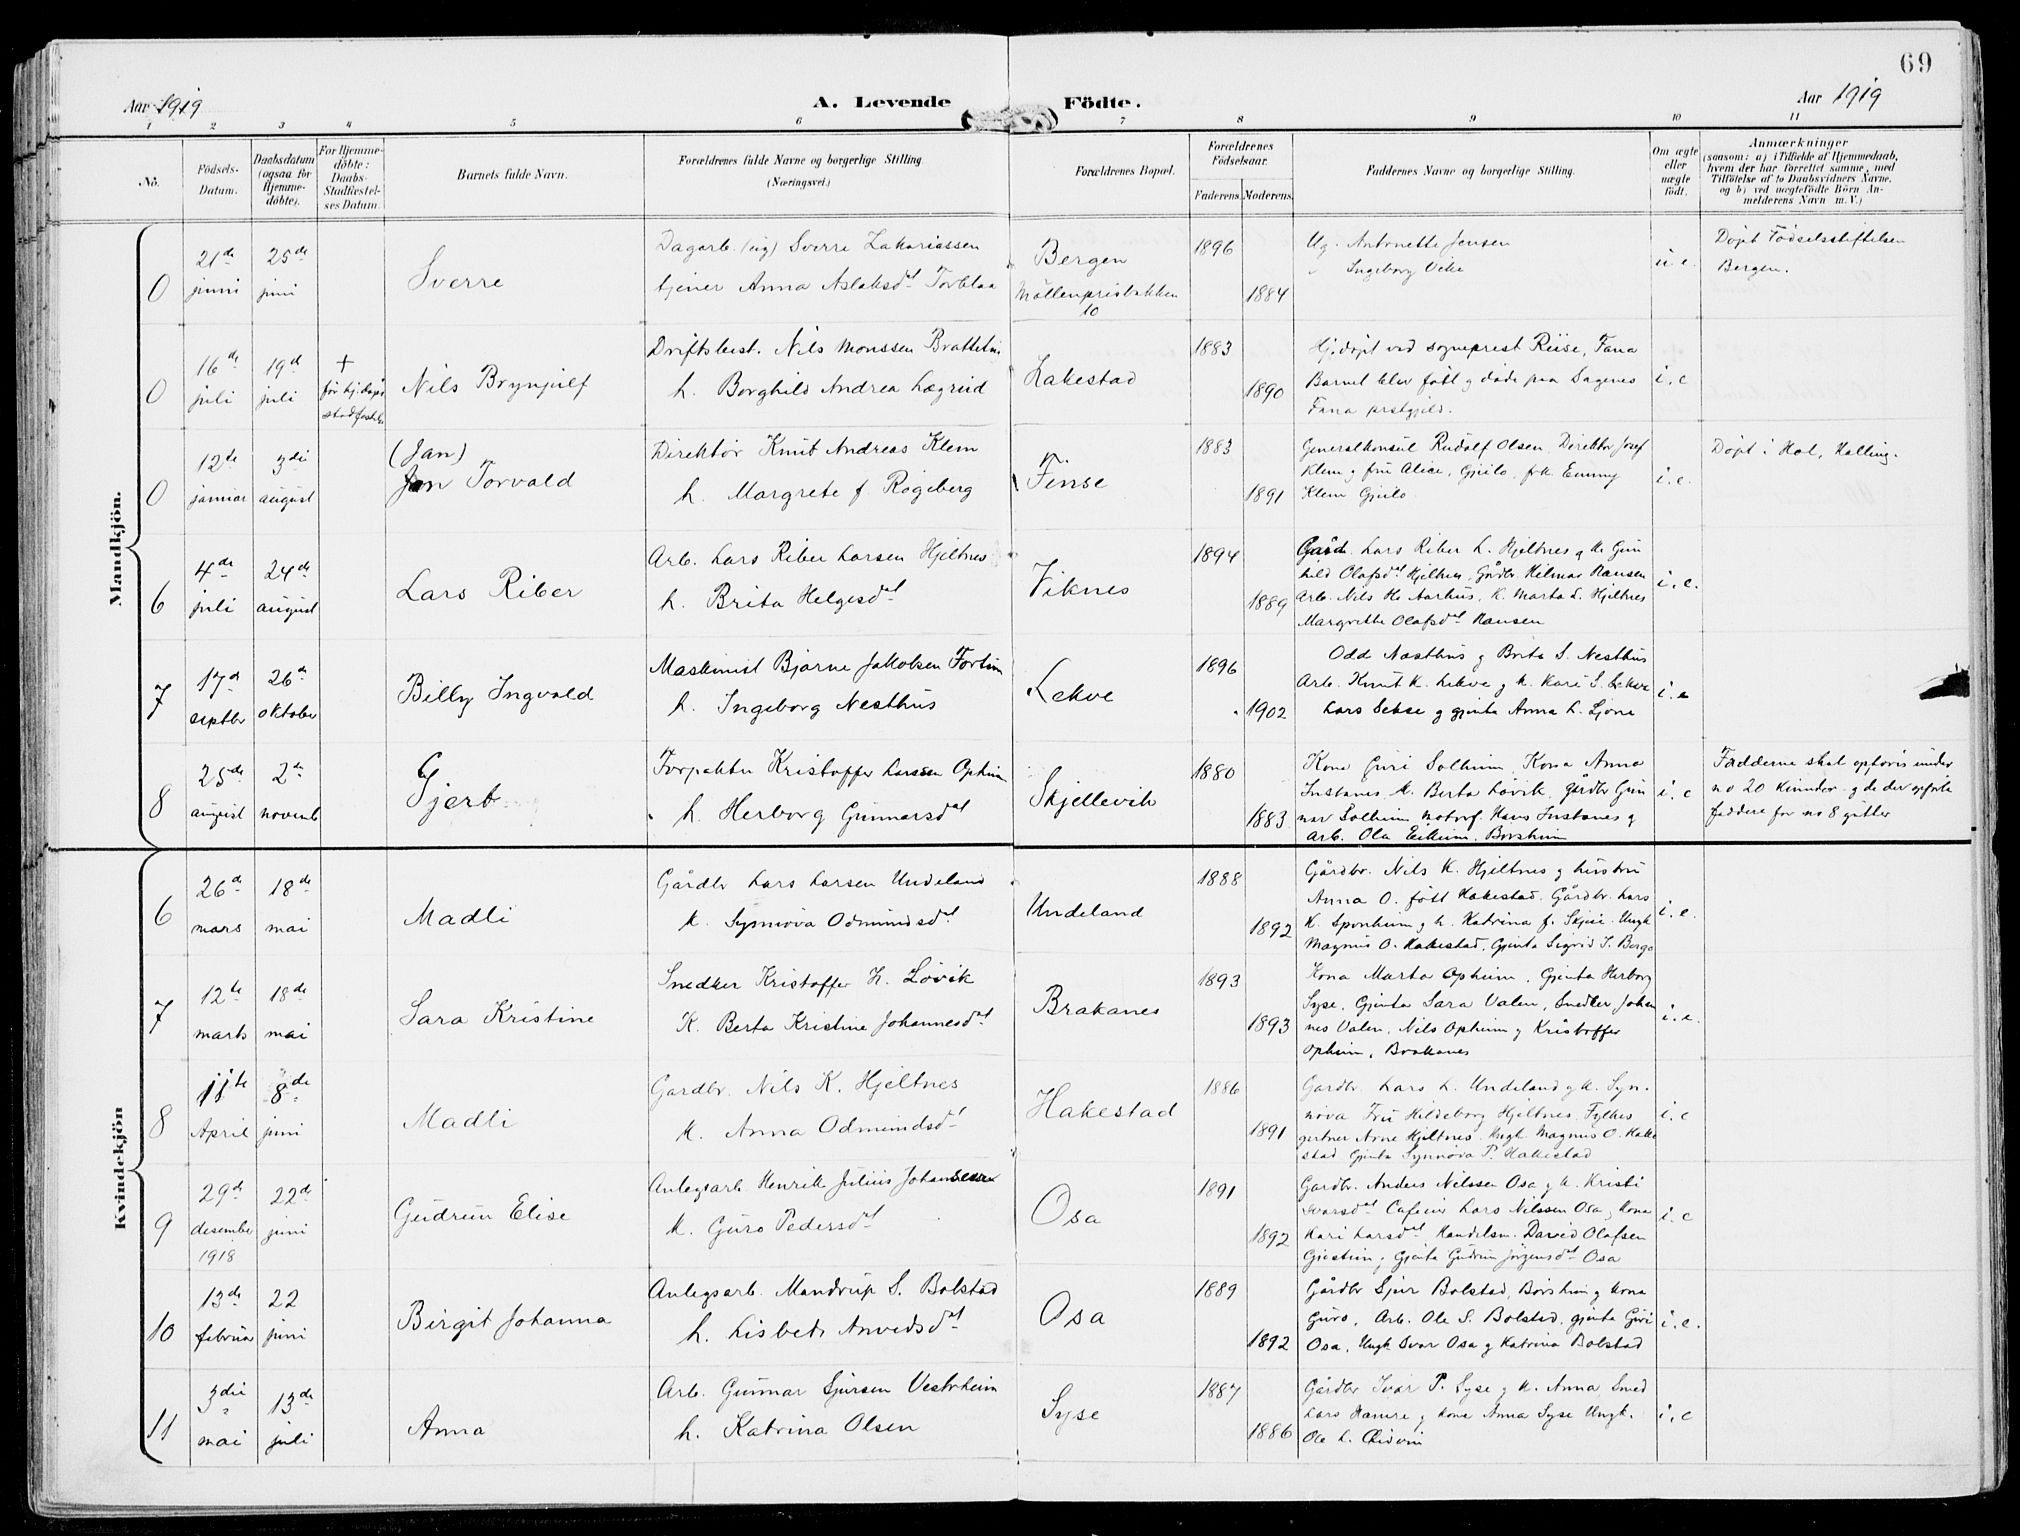 69
Aar 1919
A. Levende Födte.
Aar 1919
1 2 3 4 5 6 7 8 9 10 11
No.
Födsels-Datum.
Daabsdatum (ogsaa for Hjemme-döbte).
For Hjemme-döbte: Daabs-Stadfæstel-ses Datum.
Barnets fulde Navn.
Forældrenes fulde Navne og borgerlige Stilling (Næringsvei.)
Forældrenes Bopæl.
Forældrenes Födselsaar.
Faderens. Moderens.
Faddernes Navne og borgerlige Stilling.
Om ægte eller uægte födt.
Anmærkninger
(saasom: a) i Tilfælde af Hjemmedaab, hvem der har forrettet samme, med Tilföielse af to Daabsvidners Navne, og b) ved uægtefödte Börn An-melderens Navn m. V.)
Mandkjön.
0 21de juni 25de juni
Sverre
Dagarb. (ug) Sverre Zakariassen
tjener Anna Aslaksdat Torblaa
Bergen
Möllenprisbakken
10
1896
1884
Ug. Antonette Jensen
" Ingeborg Vike
u.e.
Döpt Födselsstiftelsen
Bergen.
0 16de juli 19d juli
+
för hj.döps
Nils Brynjulf
Driftsbest. Nils Monssen
h. Borghild Andrea Lægrud
1883
1890
Hj.döpt ved sogneprest Riise, Fana
Barnet blev födt og döde paa
Fana prstgjeld.
i.e
0 12te januar 3die august
(Jan)
Jon Torvald
Direktör Knut Andreas Klem
h. Margrete f. Rogeberg
Finse
1883
1891
Generalkonsul Rudolf Olsen, Direktör Josef
Klem og fru Alice, Gjeilo, frk. Emmy
Klem Gjeilo
i.e.
Döpt i Hol, Halling.
6 4de juli 24de august
Lars Riber
Arb. Lars Riber Larsen Hjeltnes
h. Brita Helgesdat
Viknes
1894
1889
Gård. Lars Riber L. Hjeltnes og K. Gun
hild Olafsdat Hjeltnes, Gårdbr. Hilmar Hansen
Arb. Nils Aarhus, K. Marta L. Hjeltnes
Margrethe Olafsdat Hansen
i.e.
7 17d septbr 26de oktober
Billy Ingvald
Maskinist Bjarne Jakobsen
h. Ingeborg Nesthus
Lekve
1896
1902
Odd Næsthus og Brita S. Nesthus
Arb. Knut K. Lekve og K. Kari S. Lekve
Lars Sekse og gjenta Anna L. Ljone
i.e
8 25de august 2de novemb
Gjert
Forpakter Kristoffer Larssen Opheim
h. Herborg Gunnarsdat
Skjellevik
1880
1883
Kone Guri Solheim, Kona Anna
Instanes, K. Berta Lövik, gårdbr Gun
nar Solheim motorf. Hans Instanes og
Arb. Ola Eikeim. Borsheim
i.e
Fadderne skal opföris under
no 20 kvinder og de der opförte
faddere for no 8 gutter
Kvindekjön
6 26de mars 18de mai
Madli
Gårdbr Lars Larsen Undeland
K. Synnöva Odmundsdat
Undeland
1888
1892
Gårdbr. Nils K. Hjeltnes og hustru
Anna O. född Hakestad. Gårdbr. Lars
K. Sponheim og h. Katrina f. Skjeie. Ungk
Magnus O. Hakestad, Gjenta Sigrid S. Berge
i.e.
7 12te marts 18de mai
Sara Kristine
Snedker Kristoffer H. Lövik
K. Berta Kristine Johannesdat
Brakanes
1893
1893
Kona Marta Opheim, Gjenta Herborg
Syse, Gjenta Sara Valen, Snedker Johan
nes Valen, Nils Opheim og Kristoffer
Opheim, Brakanes
i.e.
8 11te April 8de juni
Madli
Gardbr. Nils K. Hjeltnes
K. Anna Odmundsdat
Hakestad
1886
1891
Gardbr. Lars L. Undeland og K. Syn-
növa Fru Hildeborg Hjeltnes, Fylkes
gartner Arne Hjeltnes. Ungk. Magnus O. Hake
stad Gjenta Synnöva P. Hakestad
i.e
9 29de desember 1918 22de juni
Gudrun Elise
Anlegsarb. Henrik Julius Johannessen
K. Guro Pedersdat
Osa
1891
1892
Gardbr. Anders Nilssen Osa og K. Kristi
Ivarsdat Lars Nilssen Osa, Kona
Kari Larsdat Handelsm. David Olafsen
Gjenta Gudrun Jörgensdat Osa
i.e
10 13de februar 22 juni
Birgit Johanna
Anlegsarb. Mandrup S. Bolstad
h. Lisbet Arvedsdat
Osa
1889
1892
Gårdbr Sjur Bolstad, Börsheim og Kona
Guro, Arb. Ole S. Bolstad, gjenta Guri
Osa, Ungk Ivar Osa og Katrina Bolstad
i.e.
11 3die mai 13de juli
Anna
Arb. Gunnar Sjursen Vestrheim
h. Katrina Olsen
Syse
1887
1886
Gårdbr Ivar P. Syse og K. Anna, Smed
Lars Hamre og Kone Anna Syse Ungk.
Ole L.
i.e